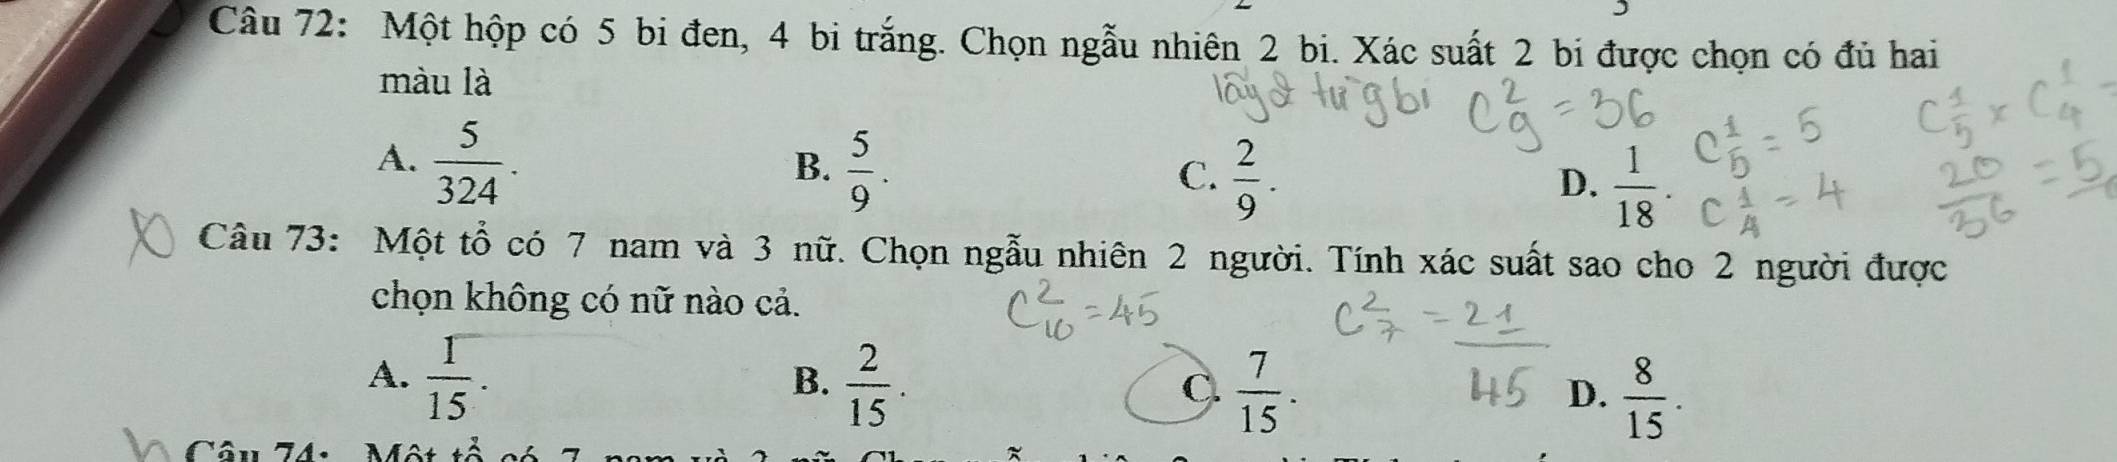 Câu 72: Một hộp có 5 bi đen, 4 bi trắng. Chọn ngẫu nhiên 2 bi. Xác suất 2 bi được chọn có đủ hai
màu là
lấy 2 từ 9 bi C²₉ = 36
C¹₅ = 5
C¹₄ = 4
C¹₅ × C¹₄ =
20/36 = 5
A. 5/324. B. 5/9. C. 2/9. D. 1/18.
Câu 73: Một tổ có 7 nam và 3 nữ. Chọn ngẫu nhiên 2 người. Tính xác suất sao cho 2 người được
chọn không có nữ nào cả.
C²₁₀ = 45 C²₇ = 21/45
A. 1/15. B. 2/15. C. 7/15. D. 8/15.
Câu 74: Một tổ có 7